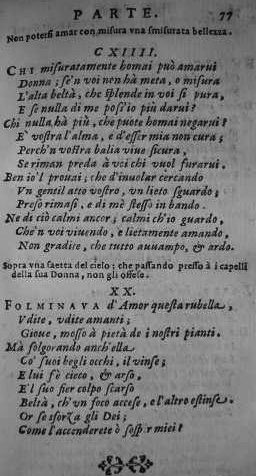 PARTE. 77
Non potersi amar con misura vna smisurata bellezza.
CXIIII.
CHI misuratamente homai può amarui
Donna; se'n voi non hà meta, o misura
L'alta beltà, che splende in voi si pura,
E se nulla di me poss'io più darui?
Chi nulla hà più, che puote homai negarui?
E' vostra l'alma, e d'esser mia non cura;
Perch'n vostra balia viue sicura,
Se riman preda à voi chi vuol furarui.
Ben io'l prouai; che d'inuolar cercando
Vn gentil atto vostro, vn lieto sguardo;
Preso rimasi, e di mè stesso in bando.
Ne di ciò calmi ancor; calmi ch'io guardo,
Che'n voi viuendo, e lietamente amando,
Non gradire, che tutto auuampo, & ardo.
Sopra vna saetta del cielo; che passando presso à i capelli
della sua Donna, non gli offese.
XX.
FOLMINAVA d'Amor questa rubella,
Vdite, vdite amanti;
Gioue, mosso à pietà de i nostri pianti.
Mà folgorando anch'ella
Co' suoi begli occhi, il vinse;
E lui fè cieco, & arso,
E'l suo fier colpo scarso
Beltà, ch'vn foco accese, e l'altro estinse.
Or se sforza gli Dei;
Come l'accenderete ò sosp r miei?